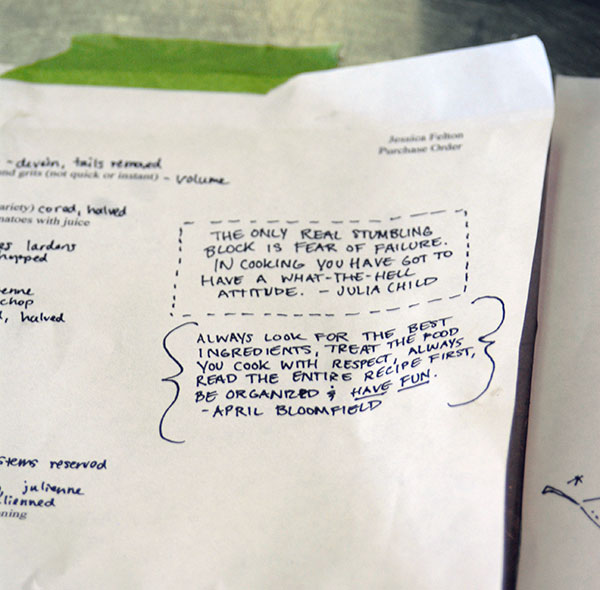 Jessica Felton
Purchase Order
- devein, tails removed
grits (not quick or instant) - volume
cored, halved
with juice
lardons
chopped
chop
, halved
THE ONLY REAL STUMBLING
BLOCK IS FEAR OF FAILURE.
IN COOKING YOU HAVE GOT TO
HAVE A WHAT-THE-HELL
ATTITUDE. - JULIA CHILD
ALWAYS LOOK FOR THE BEST
INGREDIENTS, TREAT THE FOOD
YOU COOK WITH RESPECT, ALWAYS
READ THE ENTIRE RECIPE FIRST,
BE ORGANIZED & HAVE FUN.
- APRIL BLOOMFIELD
stems reserved
, julienne